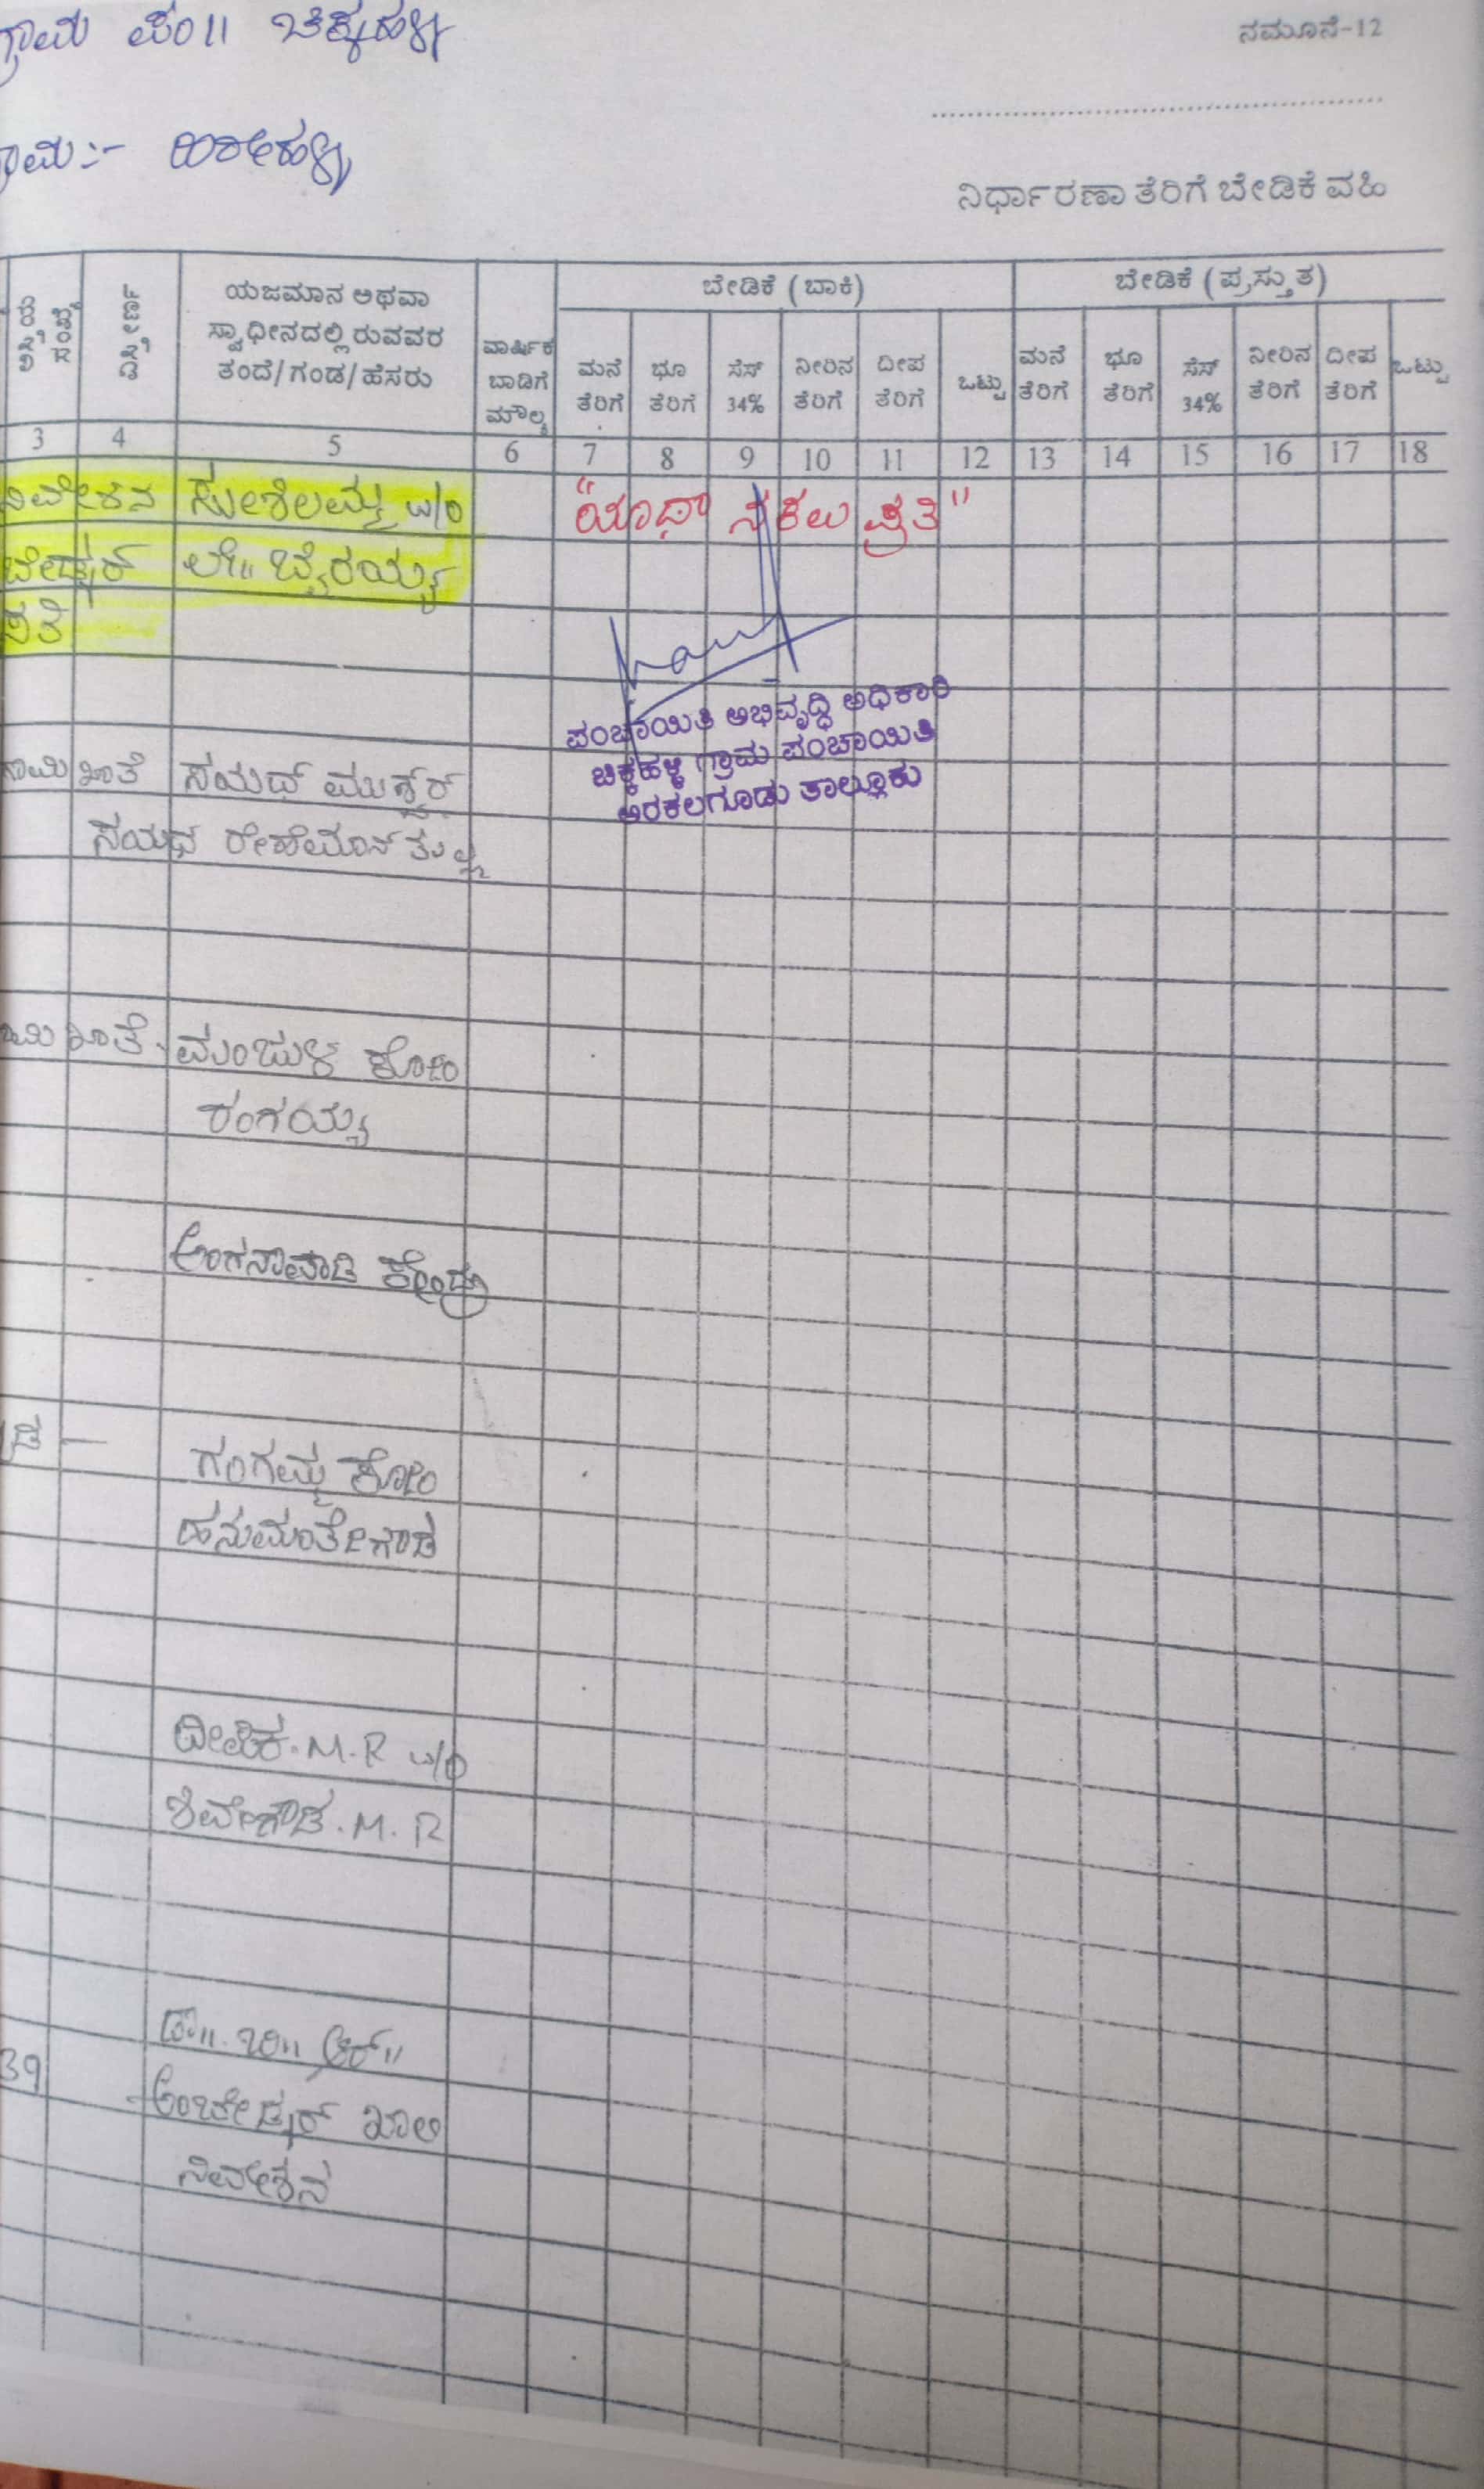 ಗ್ರಾಮ ಪಂ॥ ಚಿಕ್ಕಹಳ್ಳಿ
ನಮೂನೆ-12
ಗ್ರಾಮ:-
ನಿರ್ಧಾರಣಾ ತೆರಿಗೆ ಬೇಡಿಕೆ ವಹಿ
ಬೇಡಿಕೆ (ಬಾಕಿ) ಬೇಡಿಕೆ (ಪ್ರಸ್ತುತ)
ವಿಸ್ತೀರ್ಣ
ಯಜಮಾನ ಅಥವಾ
ಸ್ವಾಧೀನದಲ್ಲಿರುವವರ
ತಂದೆ/ಗಂಡ/ಹೆಸರು
ವಾರ್ಷಿಕ
ಬಾಡಿಗೆ
ಮೌಲ್ಯ
ಮನೆ ತೆರಿಗೆ
ಭೂ ತೆರಿಗೆ
ಸೆಸ್ 34%
ನೀರಿನ ತೆರಿಗೆ
ದೀಪ ತೆರಿಗೆ
ಒಟ್ಟು
ಮನೆ ತೆರಿಗೆ
ಭೂ ತೆರಿಗೆ
ಸೆಸ್ 34%
ನೀರಿನ ತೆರಿಗೆ
ದೀಪ ತೆರಿಗೆ
ಒಟ್ಟು
3 4 5 6 7 8 9 10 11 12 13 14 15 16 17 18
ನಿವೇಶನ ಸುಶೀಲಮ್ಮ w/o "ಯಥಾ ನಕಲು ಪ್ರತಿ"
ಲೇ॥ ಬೈರಯ್ಯ
ಪಂಚಾಯಿತಿ ಅಭಿವೃದ್ಧಿ ಅಧಿಕಾರಿ
ಚಿಕ್ಕಹಳ್ಳಿ ಗ್ರಾಮ ಪಂಚಾಯಿತಿ
ಅರಕಲಗೂಡು ತಾಲ್ಲೂಕು
ಖಾತೆ ಸಯದ್
ಸಯದ್
ಖಾತೆ ಮಂಜುಳ ಕೋಂ
ರಂಗಯ್ಯ
ಅಂಗನವಾಡಿ ಕೇಂದ್ರ
ಗಂಗಮ್ಮ ಕೋಂ
ಹನುಮಂತೇಗೌಡ
ದೀಪಿಕ. M. R w/o
ಶಿವೇಗೌಡ. M. R
ಡಾ॥ ಬಿ॥ ಆರ್॥
39 ಅಂಬೇಡ್ಕರ್ ಖಾಲಿ
ನಿವೇಶನ